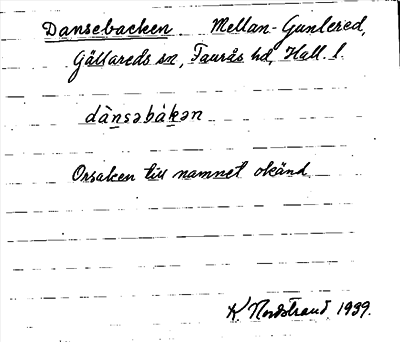 Dansebacken Mellan-Gunlered,
Gällareds sn, Faurås hd, Hall. l.
dànsəbàkən
Orsaken till namnet okänd.
K. Nordstrand 1939.